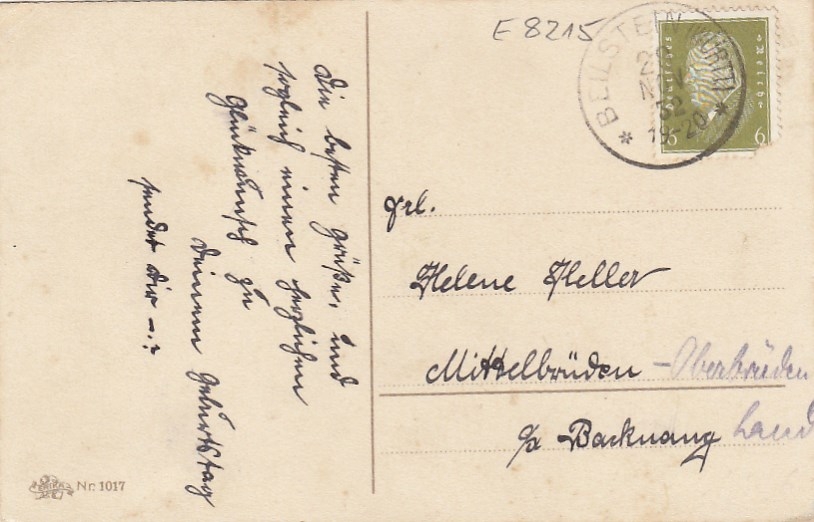 E 8215
BEILSTEIN (WÜRTT)
NOV
32
19-20
Deutsches Reich
6 6
Die besten Grüße, und
sogleich einen herzlichen
Glückwunsch zu
Deinem Geburtstag
sendet Dir —.?
Frl.
Helene Heller
Mittelbrüden - Oberbrüden
c/a Backnang Land
Nr. 1017